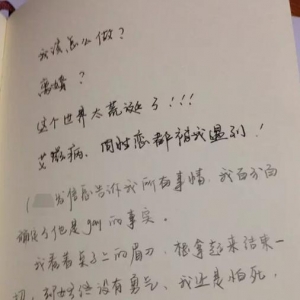 我该怎么做？
离婚？
这个世界太荒诞了！！！
艾滋病、同性恋都被我遇到！
发信息告诉我所有事情，我百分百
确定了他是gay的事实。
我看着桌子上的眉刀，想拿起来结束一
切，可始终没有勇气，我还是怕死，